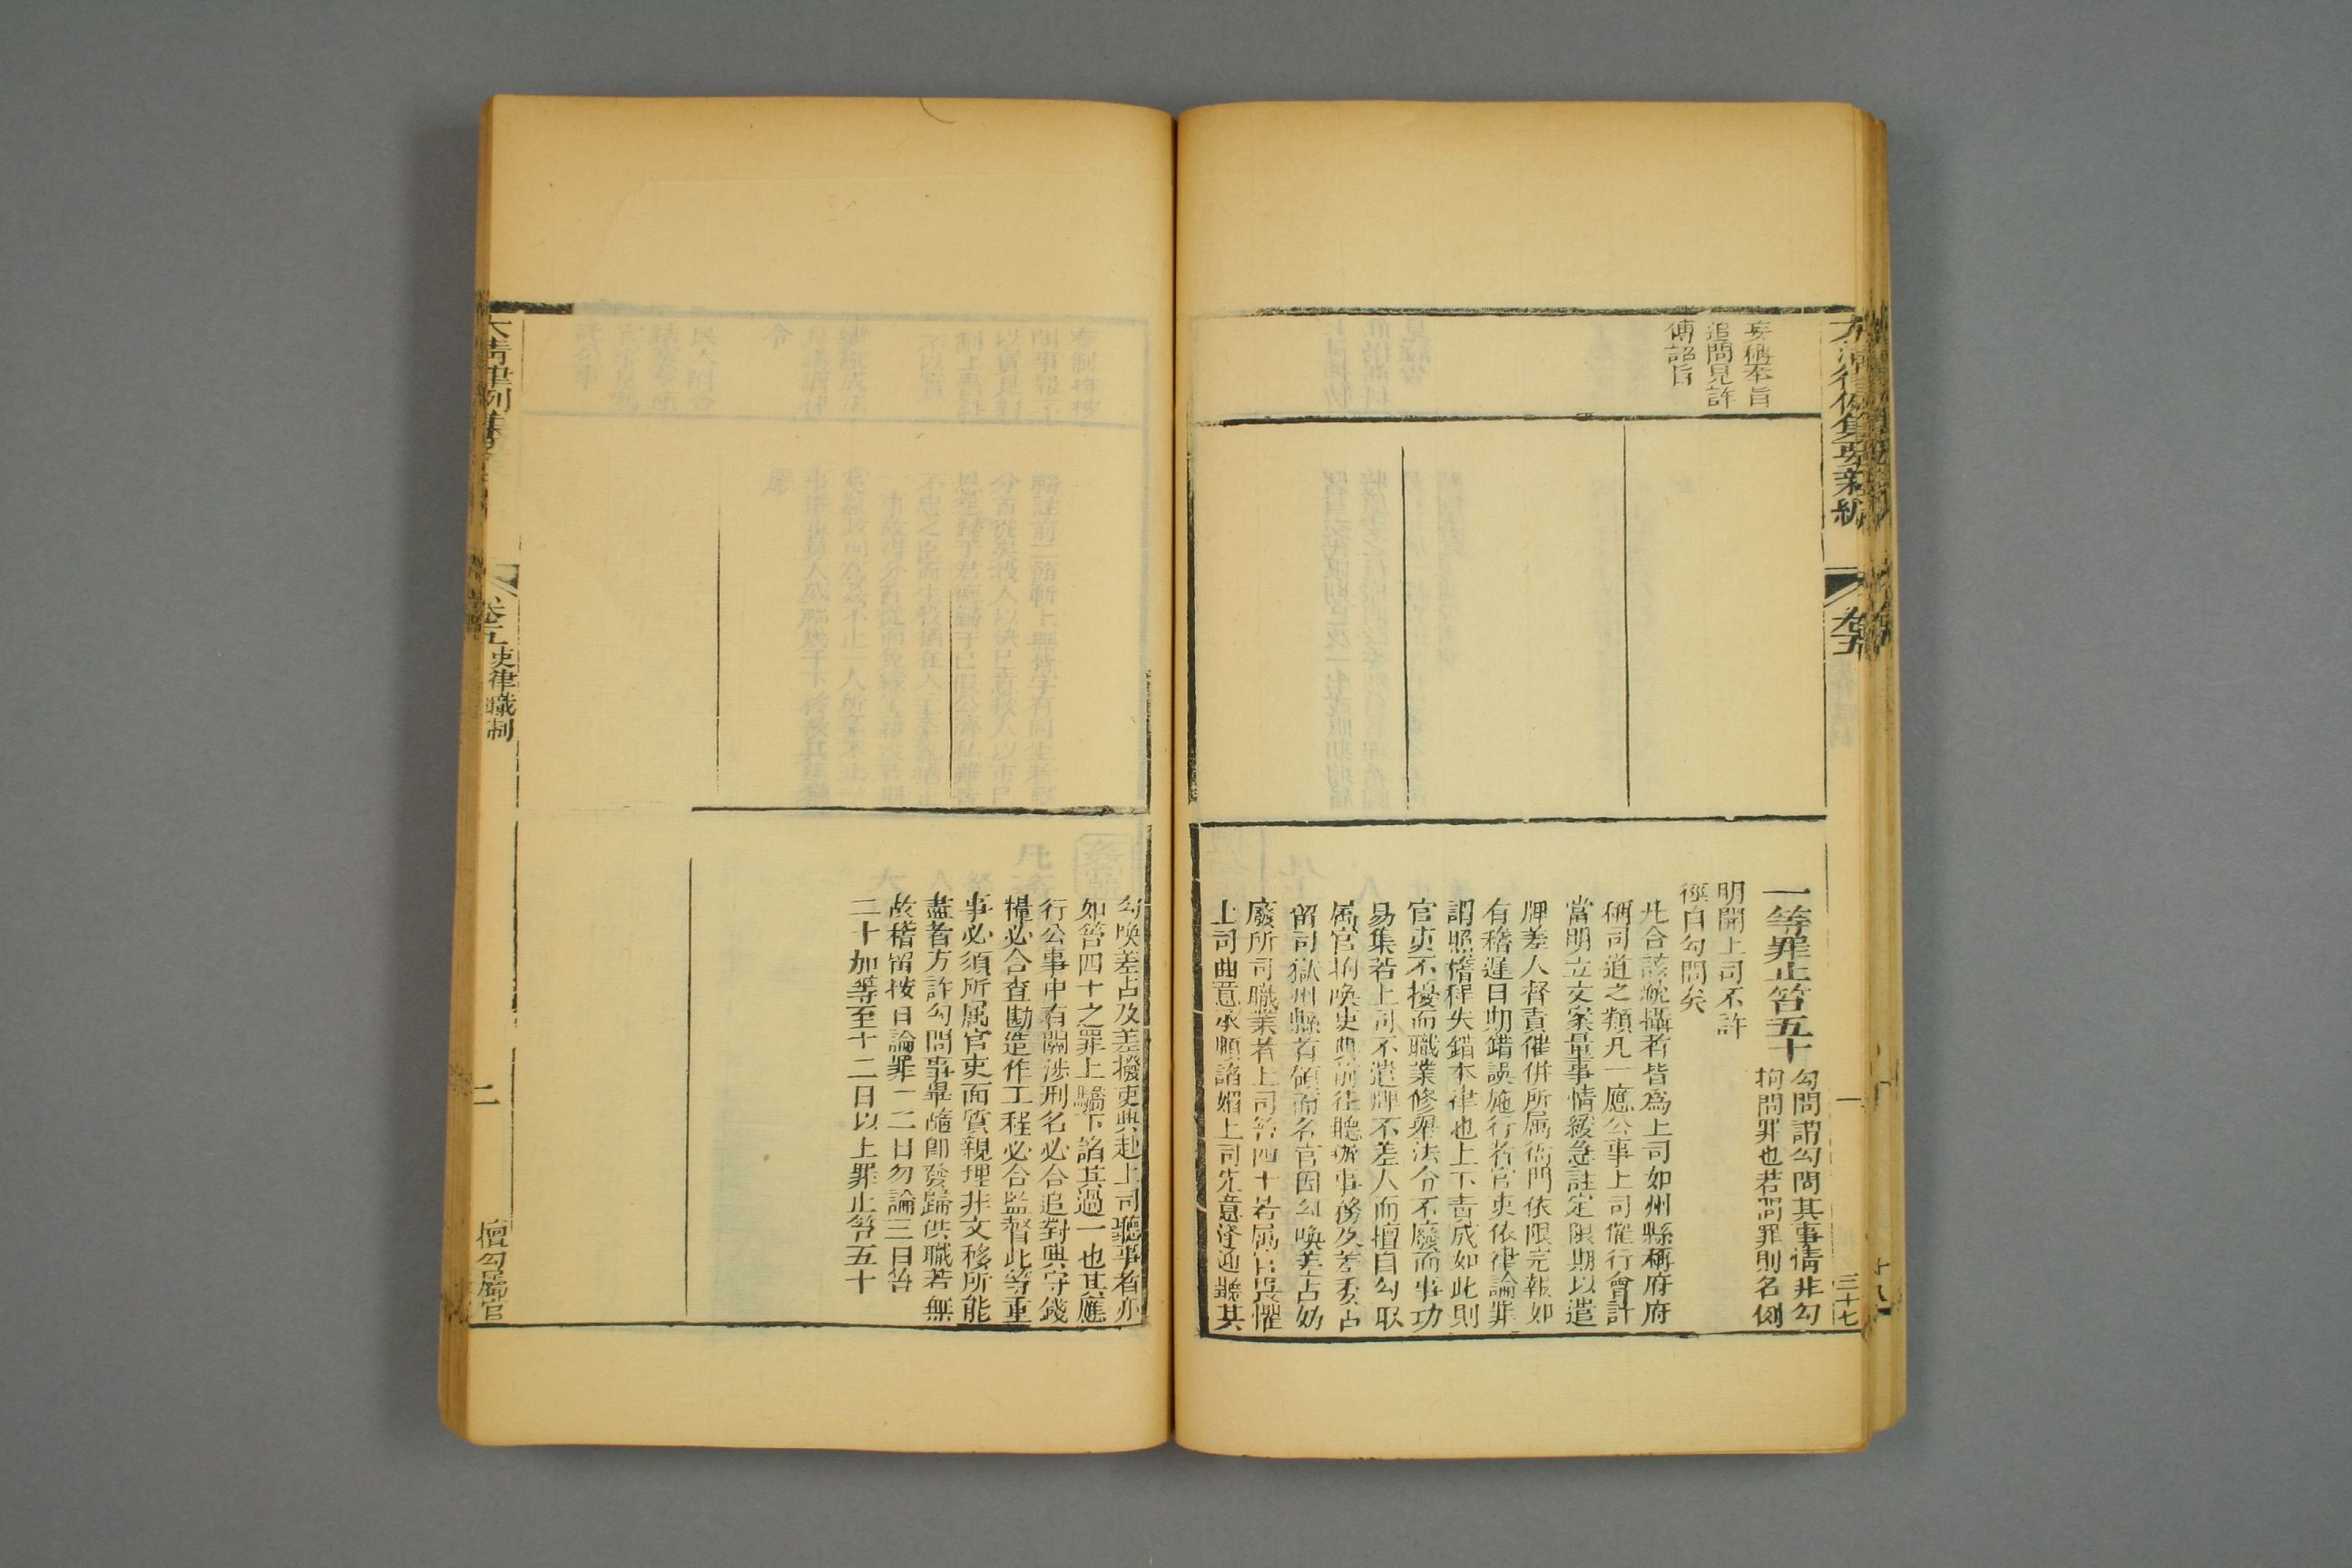 大清律例集要新編
卷五
三十七
妄稱奉旨
追問見許
傅詔旨
一等罪止笞五十
勾問謂勾問其事情非勾
拘問罪也若問罪則名例
明開上司不許
徑自勾問矣
此合該統攝者皆為上司如州縣稱府府
稱司道之類凡一應公事上司催行會計
當明立文案量事情緩急註定限期以遣
牌差人督責催併所属衙門依限完報如
有稽遲日期錯誤施行者官吏依律論罪
謂照稽程失錯本律也上下責成如此則
官吏不擾而職業修舉法令不廢而事功
易集若上司不遣牌不差人而擅自勾取
属官拘喚吏典前往聽辦事務及差委占
留司獄州縣首領而名官因勾喚差占妨
廢所司職業者上司笞四十若属官畏懼
上司曲意承順諂媚上司先意逢迎聽其
勾喚差占及差撥吏典赴上司聽事者亦
如笞四十之罪上驕下諂其過一也其應
行公事中有關涉刑名必合追對典守錢
糧必合查勘造作工程必合監督此等重
事必須所属官吏面質親理非文移所能
盡者方許勾問事畢隨即發歸供職若無
故稽留按日論罪一二日勿論三日笞
二十加等至十二日以上罪止笞五十
大清律例
卷五
吏律職制
二
擅勾屬官